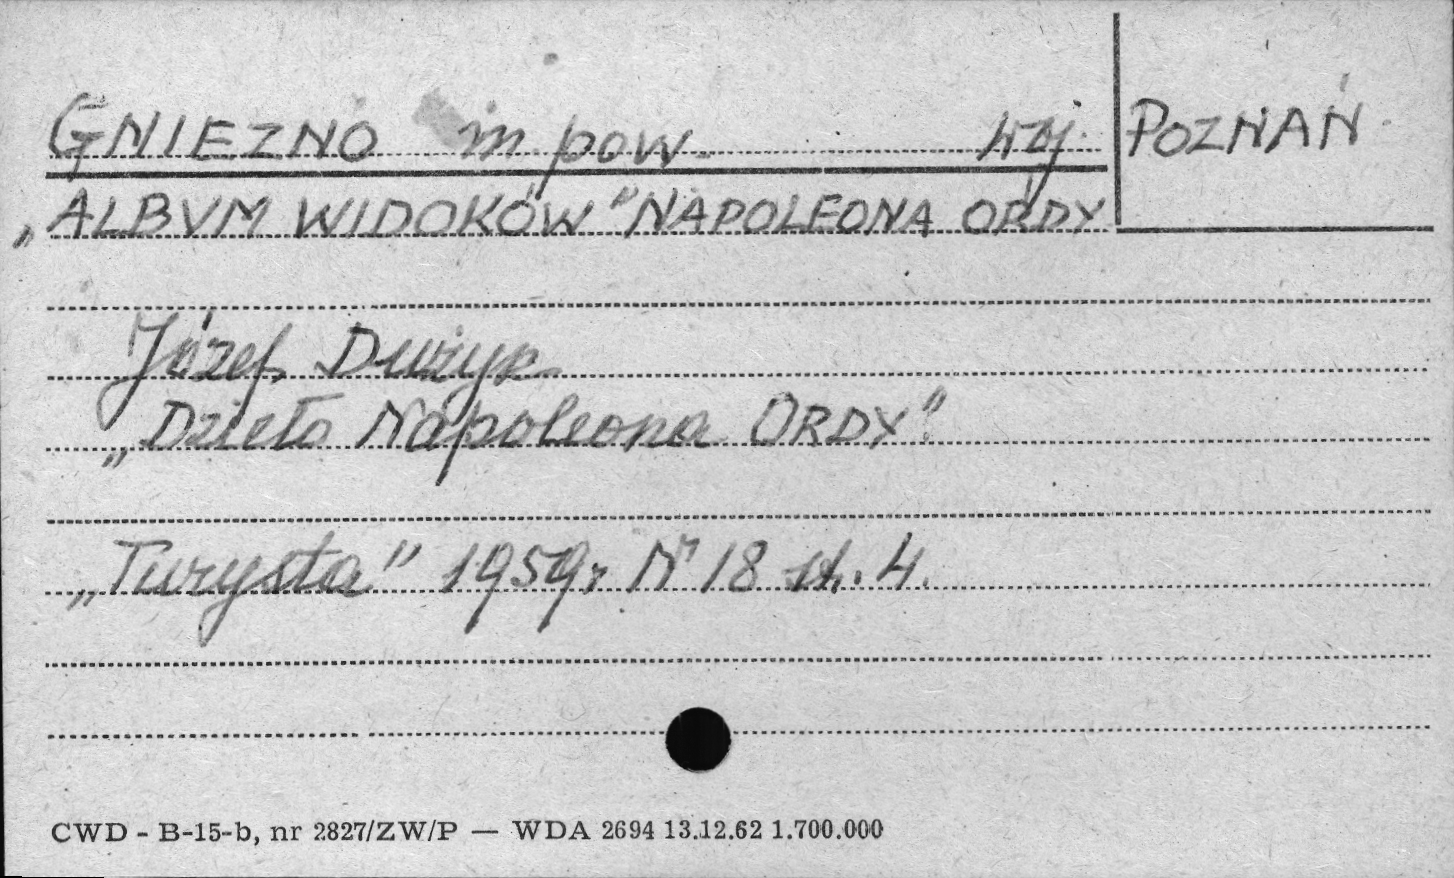 GNIEZNO m. pow. woj. POZNAŃ
„ALBVM WIDOKÓW" NAPOLEONA ORDY
Józef Dużyk
„Dzieło Napoleona ORDY".
„Turysta" 1959r Nr 18 st. 4.
CWD - B-15-b, nr 2827/ZW/P — WDA 2694 13.12.62 1.700.000